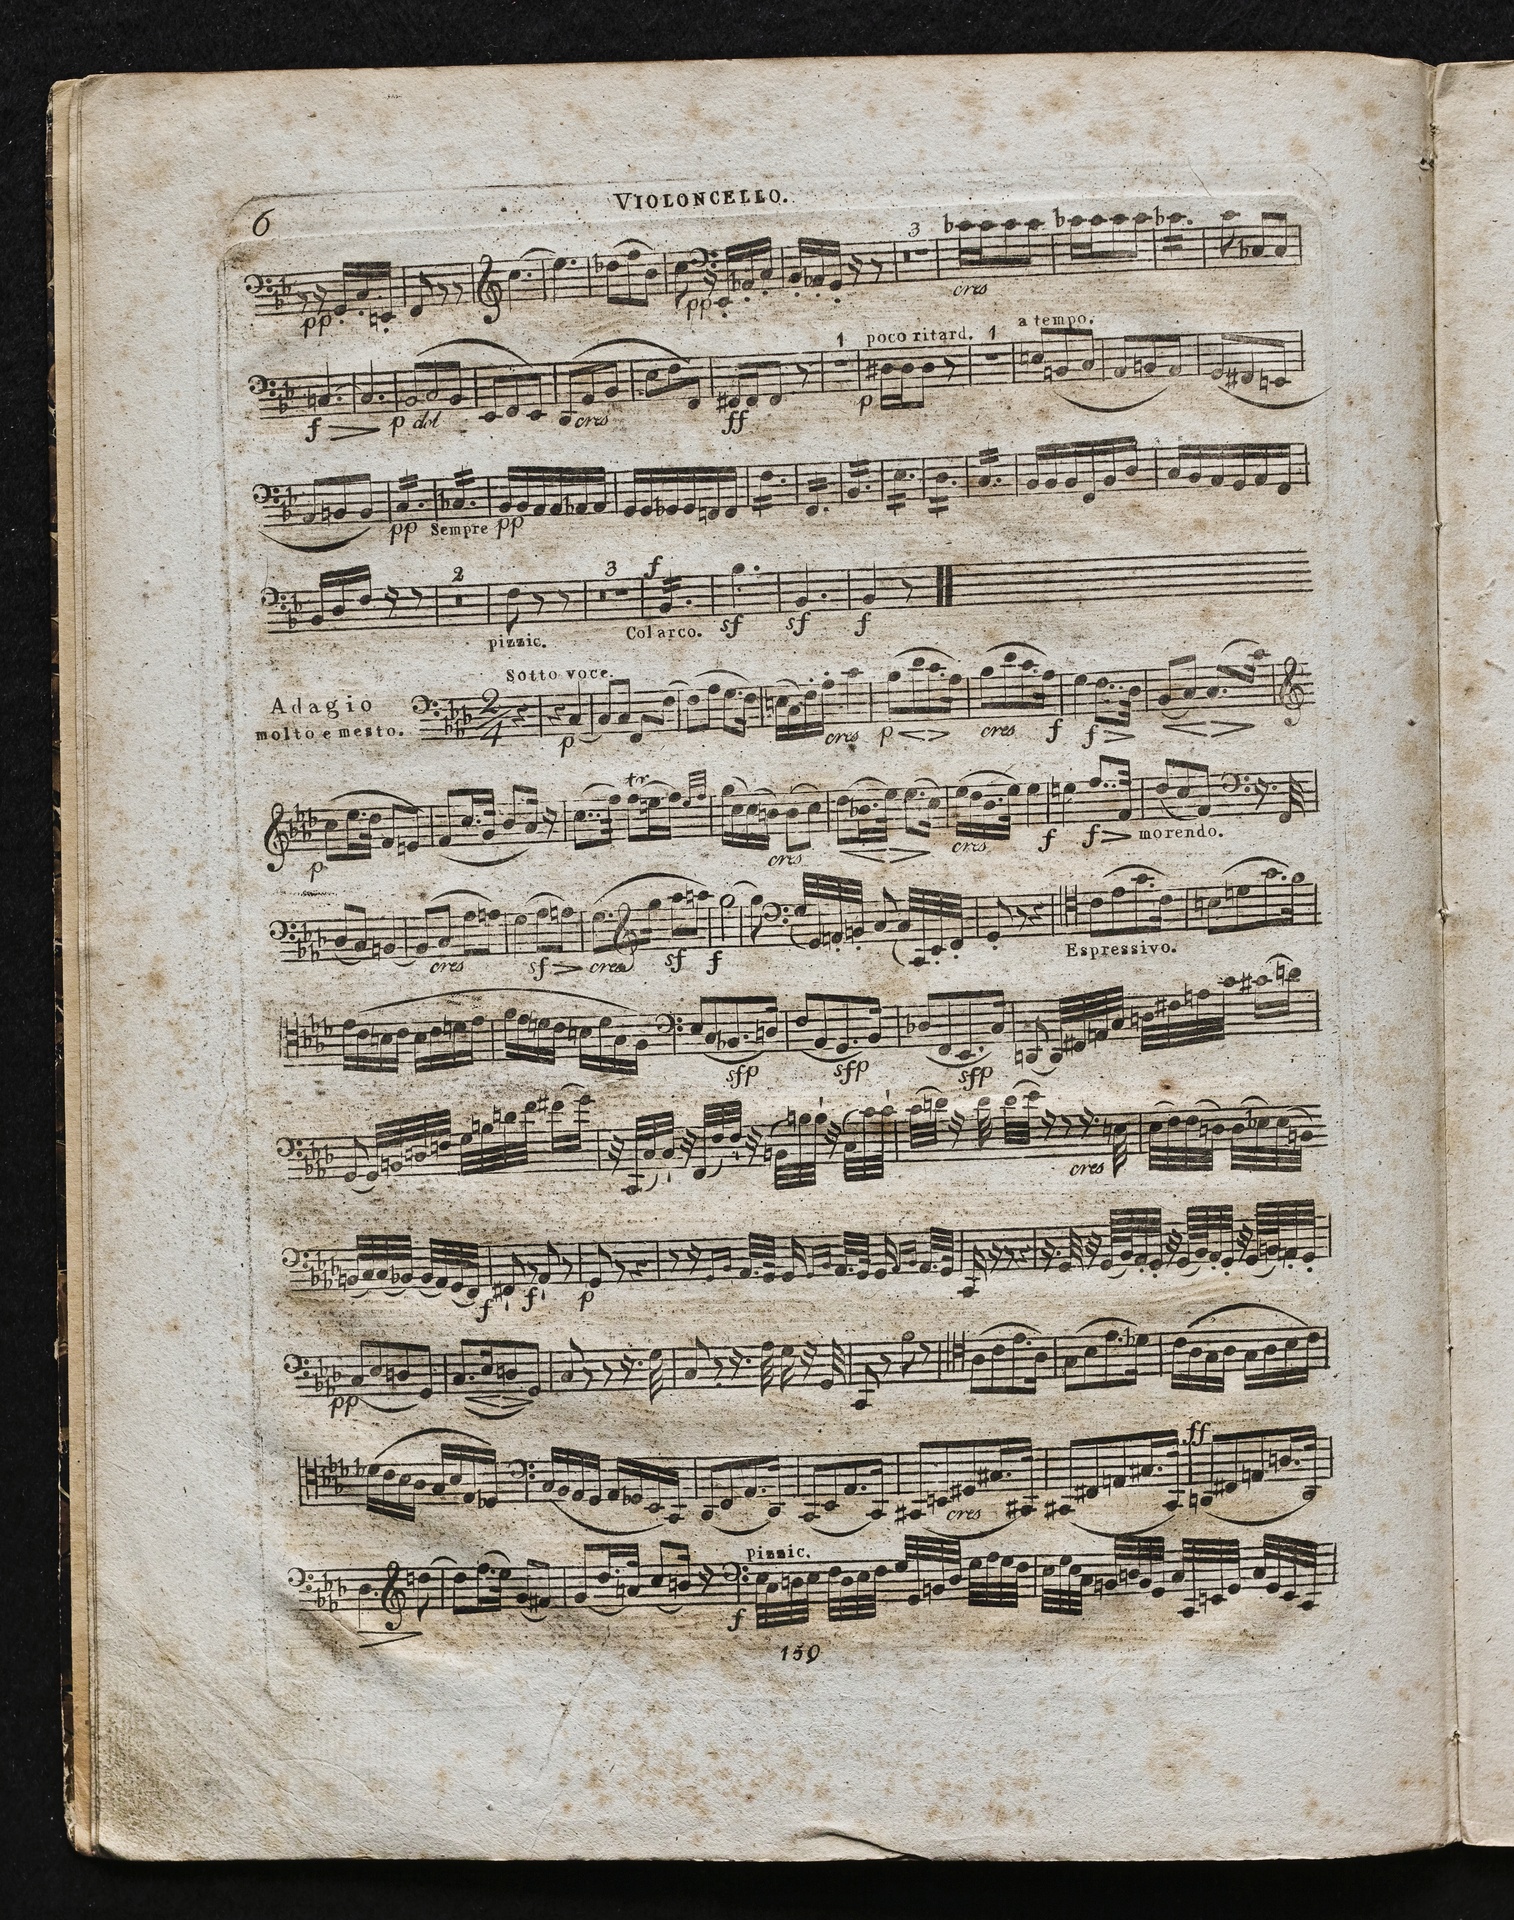 6
VIOLONCELLO.
3
pp
pp
cres
1 poco ritard. 1 a tempo.
f p dol cres ff p
pp Sempre pp
2 3 f
pizzic. Col arco. sf sf f
Sotto voce.
Adagio
molto e mesto.
2
4
p cres p cres f f
tr
p cres cres f f morendo.
cres sf cres sf f Espressivo.
sfp sfp sfp
cres
f f p
pp
ff
cres
pizzic.
f
159